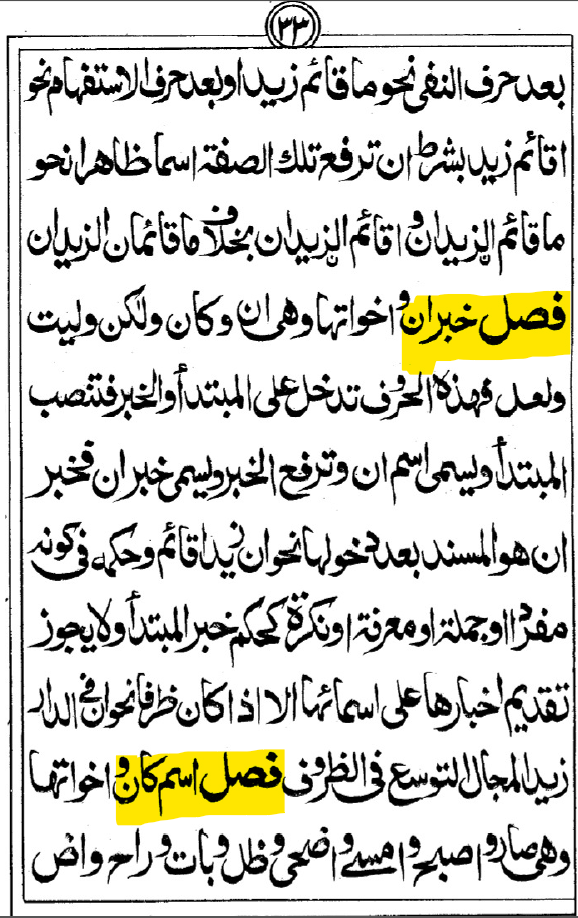 ٣٣
بعد حرف النفى نحو ما قائم زيد او بعد حرف الاستفهام نحو
اقائم زيد بشرط ان ترفع تلك الصفة اسما ظاهرا نحو
ما قائم الزيدان و اقائم الزيدان بخلاف ما قائمان الزيدان
فصل خبر ان و اخواتها وهى ان و كان ولكن وليت
ولعل فهذه الحروف تدخل على المبتدأ والخبر فتنصب
المبتدأ ويسمى اسم ان وترفع الخبر ويسمى خبر ان فخبر
ان هو المسند بعد دخولها نحو ان زيدا قائم وحكمه فى كونه
مفردا او جملة او معرفة او نكرة كحكم خبر المبتدأ ولا يجوز
تقديم اخبارها على اسمائها الا اذا كان ظرفا نحو ان فى الدار
زيد المجال التوسع فى الظروف فصل اسم كان و اخواتها
وهى صار و اصبح و امسى و اضحى و ظل و بات و راح و اض